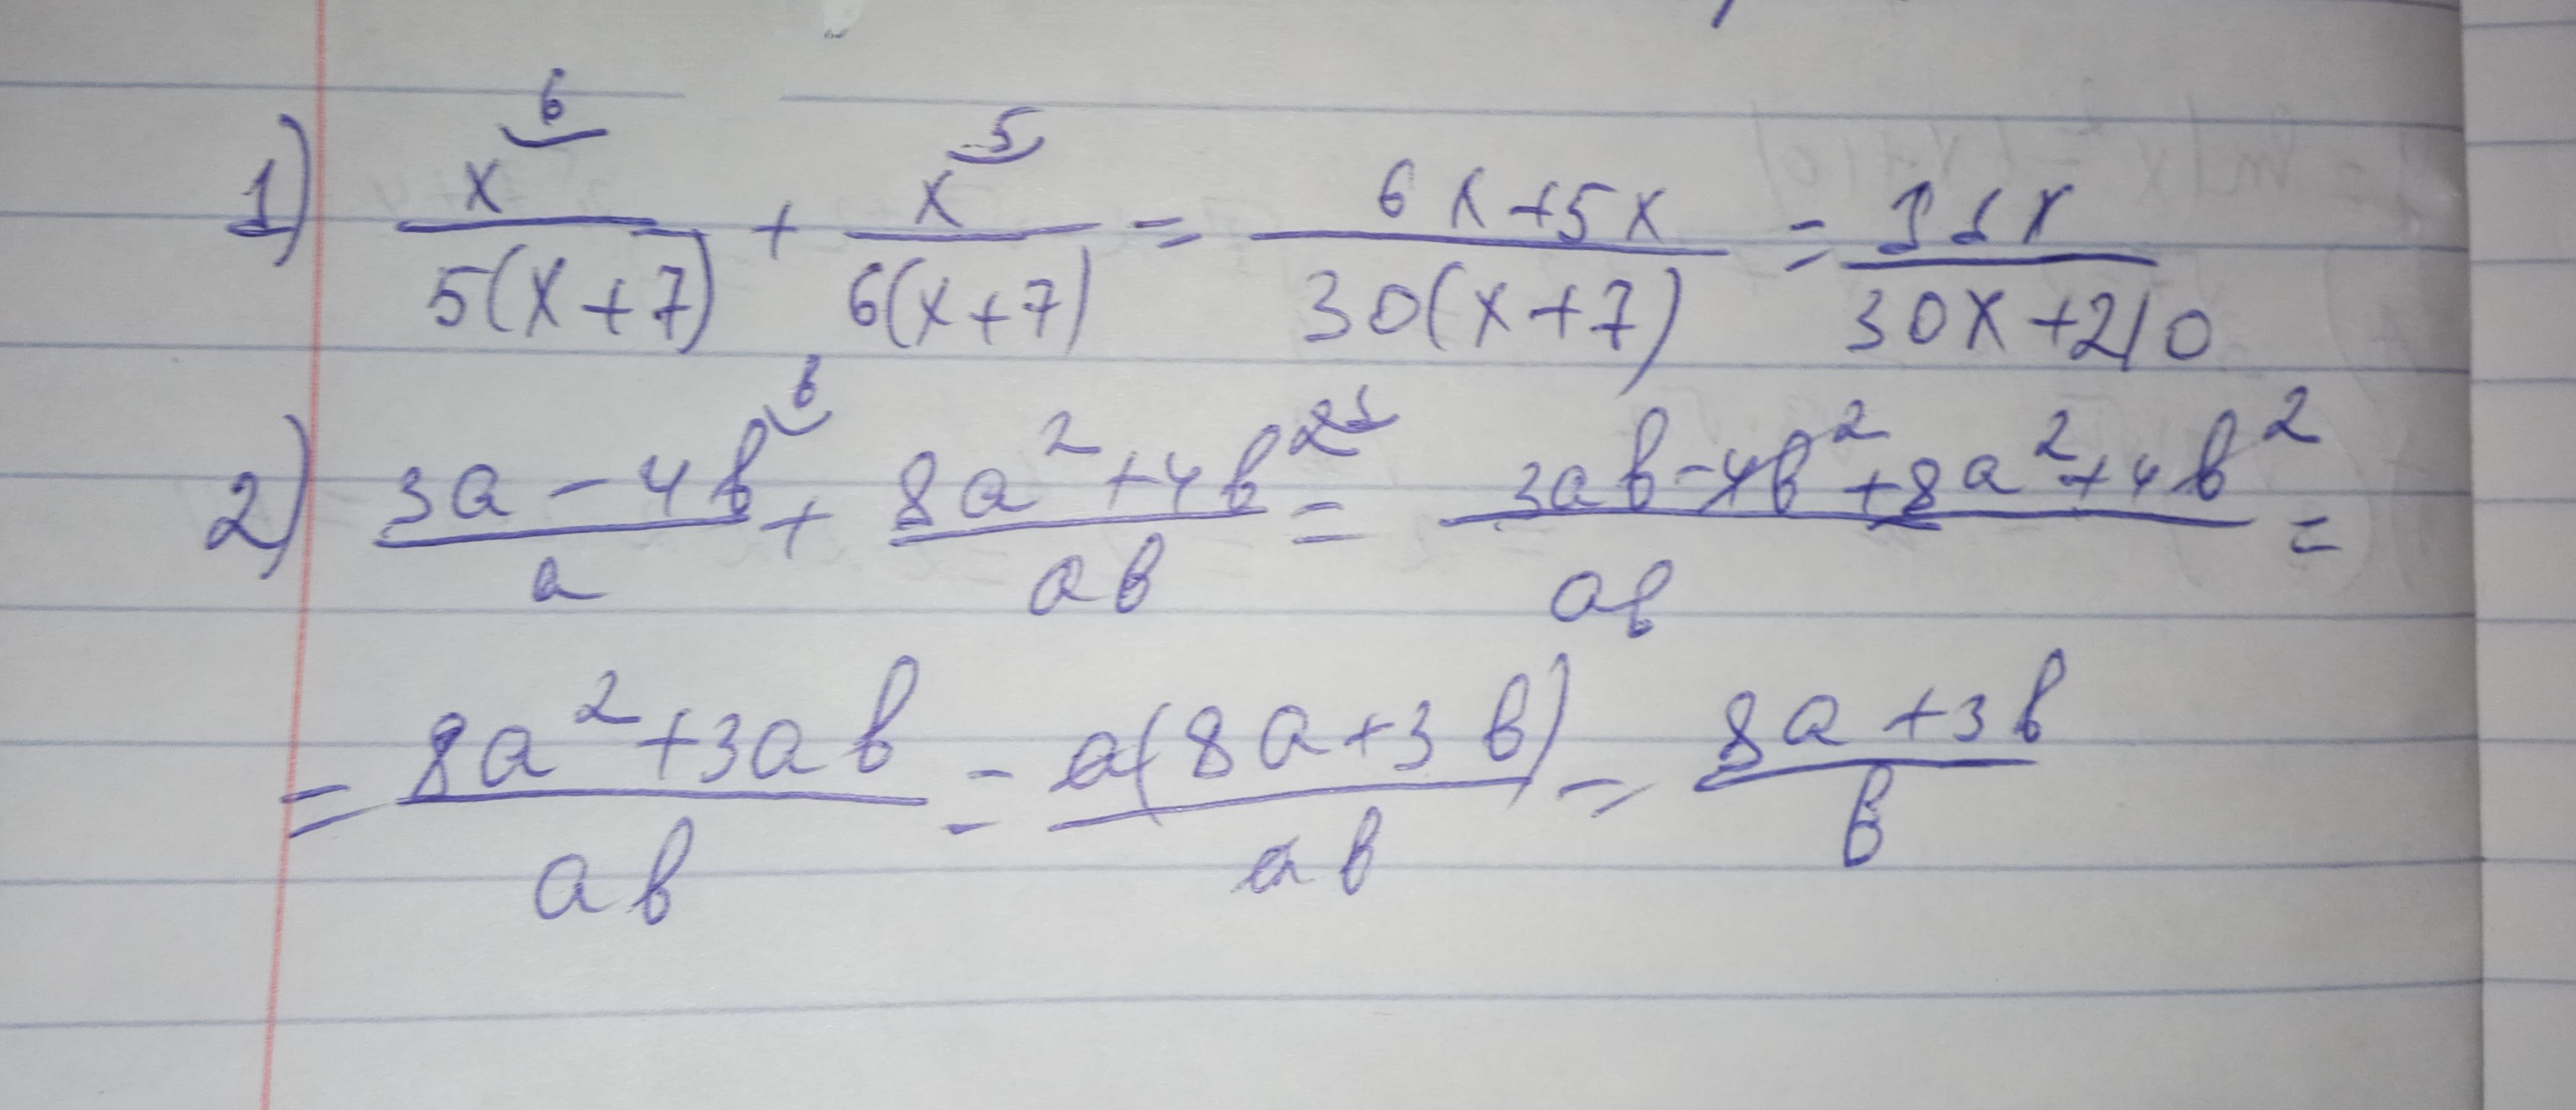 1) x^6 / 5(x+7) + x^5 / 6(x+7) = 6x+5x / 30(x+7) = 11x / 30x+210
2) 3a-4b^b / a + 8a²+4b²^1 / ab = 3ab-4b²+8a²+4b² / ab =
= 8a²+3ab / ab = a(8a+3b) / ab = 8a+3b / b